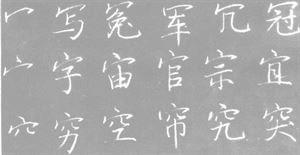 冖写冤军冗冠
宀字宙官宗宜
穴穷空帘究突